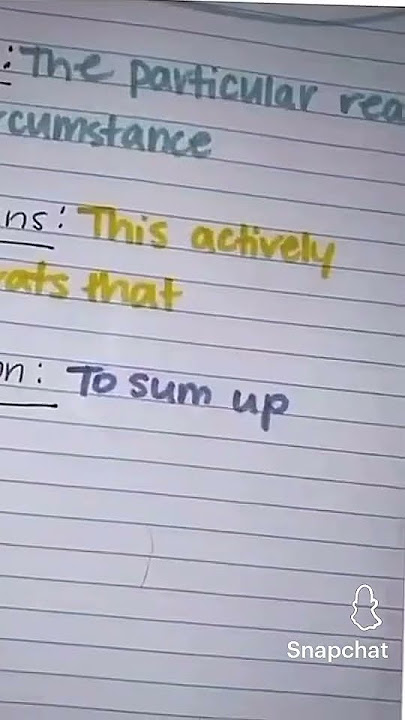 : The particular rea
rcumstance
ns: This actively
rats that
on: To sum up
Snapchat